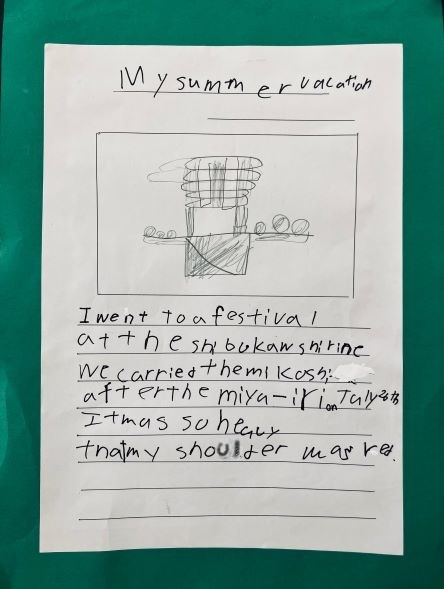 My summer vacation
I went to a festival
at the shibukaw shirine
we carried the mikoshi
after the miya-iri on July 26th
It was so heavy
that my shoulder was red.